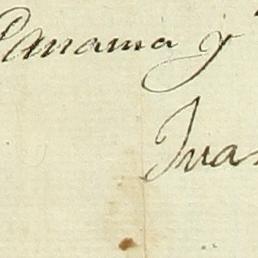 Panama y
Jua